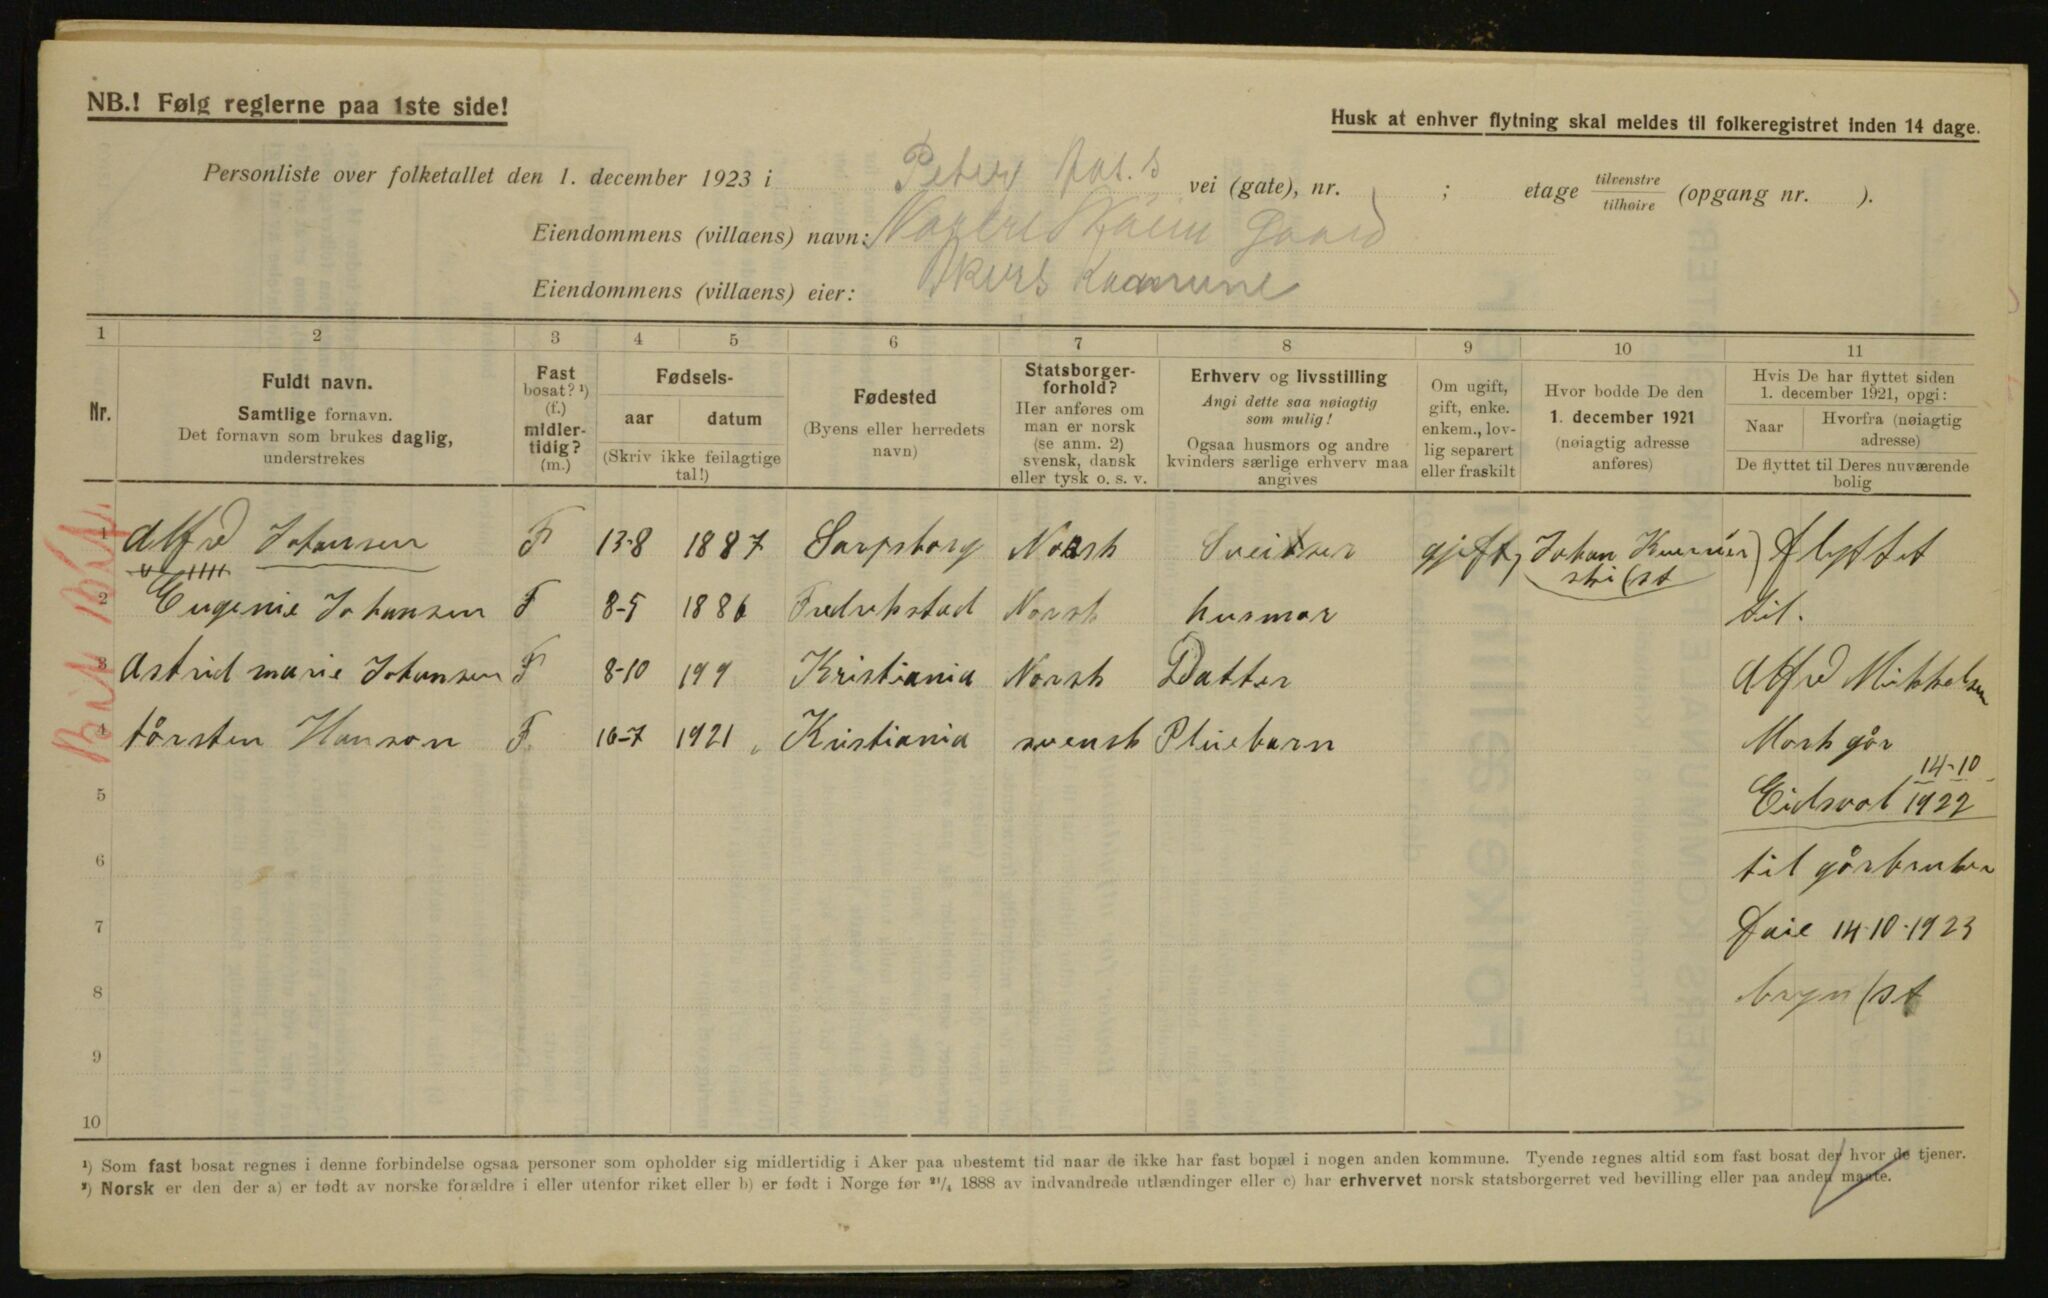 NB.! Følg reglerne paa 1ste side!
Husk at enhver flytning skal meldes til folkeregistret inden 14 dage.
Personliste over folketallet den 1. december 1923 i vei (gate), nr. ; etage tilvenstre tilhøire (opgang nr. ).
Eiendommens (villaens) navn: Gaard
Eiendommens (villaens) eier: Akers Kommune
1 2 3 4 5 6 7 8 9 10 11
Nr.
Fuldt navn.
Samtlige fornavn.
Det fornavn som brukes daglig,
understrekes
Fast
bosat? ¹)
(f.)
midler-
tidig?
(m.)
Fødsels-
aar datum
(Skriv ikke feilagtige
tal!)
Fødested
(Byens eller herredets
navn)
Statsborger-
forhold?
Her anføres om
man er norsk
(se anm. 2)
svensk, dansk
eller tysk o. s. v.
Erhverv og livsstilling
Angi dette saa nøiagtig
som mulig!
Ogsaa husmors og andre
kvinders særlige erhverv maa
angives
Om ugift,
gift, enke.
enkem., lov-
lig separert
eller fraskilt
Hvor bodde De den
1. december 1921
(nøiagtig adresse
anføres)
Hvis De har flyttet siden
1. december 1921, opgi:
Naar Hvorfra (nøiagtig
adresse)
De flyttet til Deres nuværende
bolig
1 Alfred Johansen F 13-8 1887 Sarpsborg Norsk Sveitser gjeft Johan flyttet
2 Eugenie Johansen F 8-5 1886 Fredrikstad Norsk husmor til.
3 Astrid marie Johansen F 8-10 199 Kristiania Norsk Datter Alfred Mikkelsen
4 tårsten Hanson F. 16-7 1921 Kristiania svensk Pleiebarn Mork går
14-10
5 Eidsvol 1922
6 til gårbruker
7 14-10-1923
8 bryn /st
9
10
¹) Som fast bosat regnes i denne forbindelse ogsaa personer som opholder sig midlertidig i Aker paa ubestemt tid naar de ikke har fast bopæl i nogen anden kommune. Tyende regnes altid som fast bosat der hvor de tjener.
²) Norsk er den der a) er født av norske forældre i eller utenfor riket eller b) er født i Norge før ²¹/₄ 1888 av indvandrede utlændinger eller c) har erhvervet norsk statsborgerret ved bevilling eller paa anden maate.